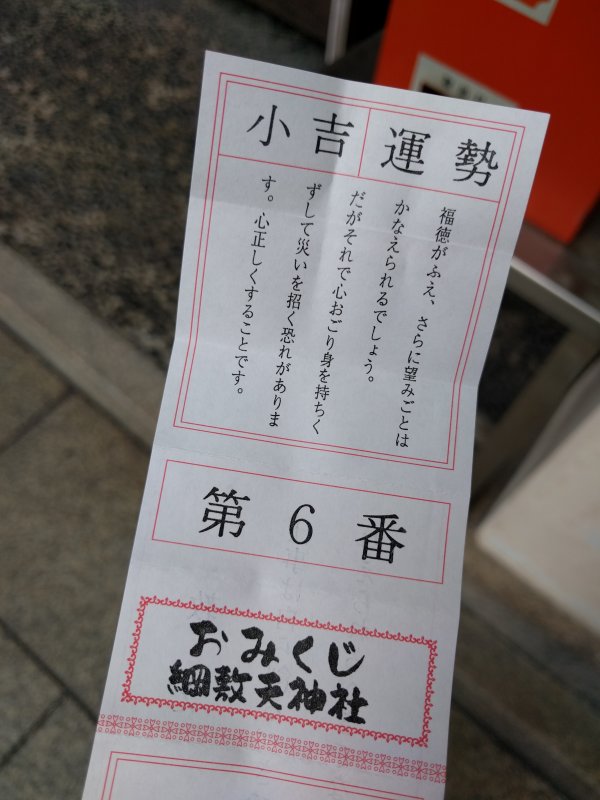 小吉 運勢
福徳がふえ、さらに望みごとは
かなえられるでしょう。
だがそれで心おごり身を持ちく
ずして災いを招く恐れがありま
す。心正しくすることです。
第6番
おみくじ
細敷天神社